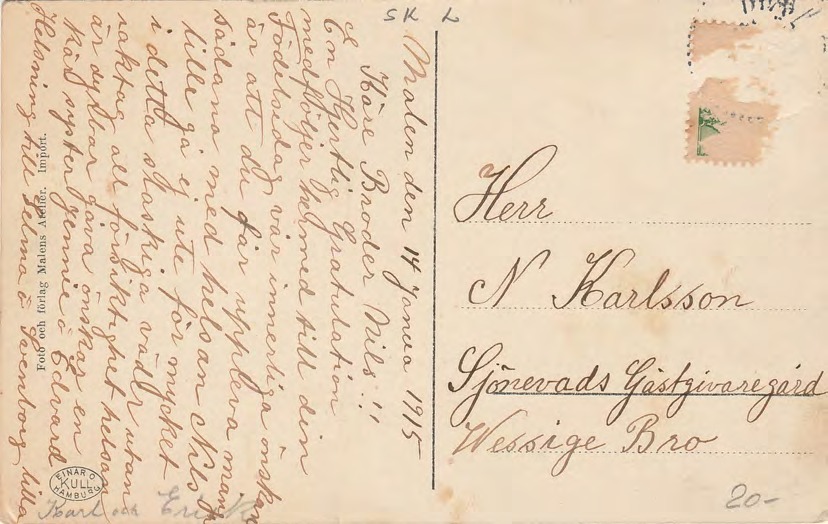 SK L
Malen den 14 Janua 1915
Käre Broder Nils!!
En Hjertlig Gratulation
medföljer härmed till din
Födelsedag vår innerliga önskan
är att du får uppleva många
sådana med helsan Nils
lille gå ej ute för mycket
i detta slaskiga väder utan
iaktag all försiktighet helsan
är dyrbar gåva önskar en
kär syster Jennie o Edvard
Helsning till Selma o Svenborg lilla
Karl och Erik
Foto och förlag Malens Atelier. Import.
EINAR O KULL HAMBURG
Herr
N Karlsson
Sjönevads Gästgivaregård
Wessige Bro
20-